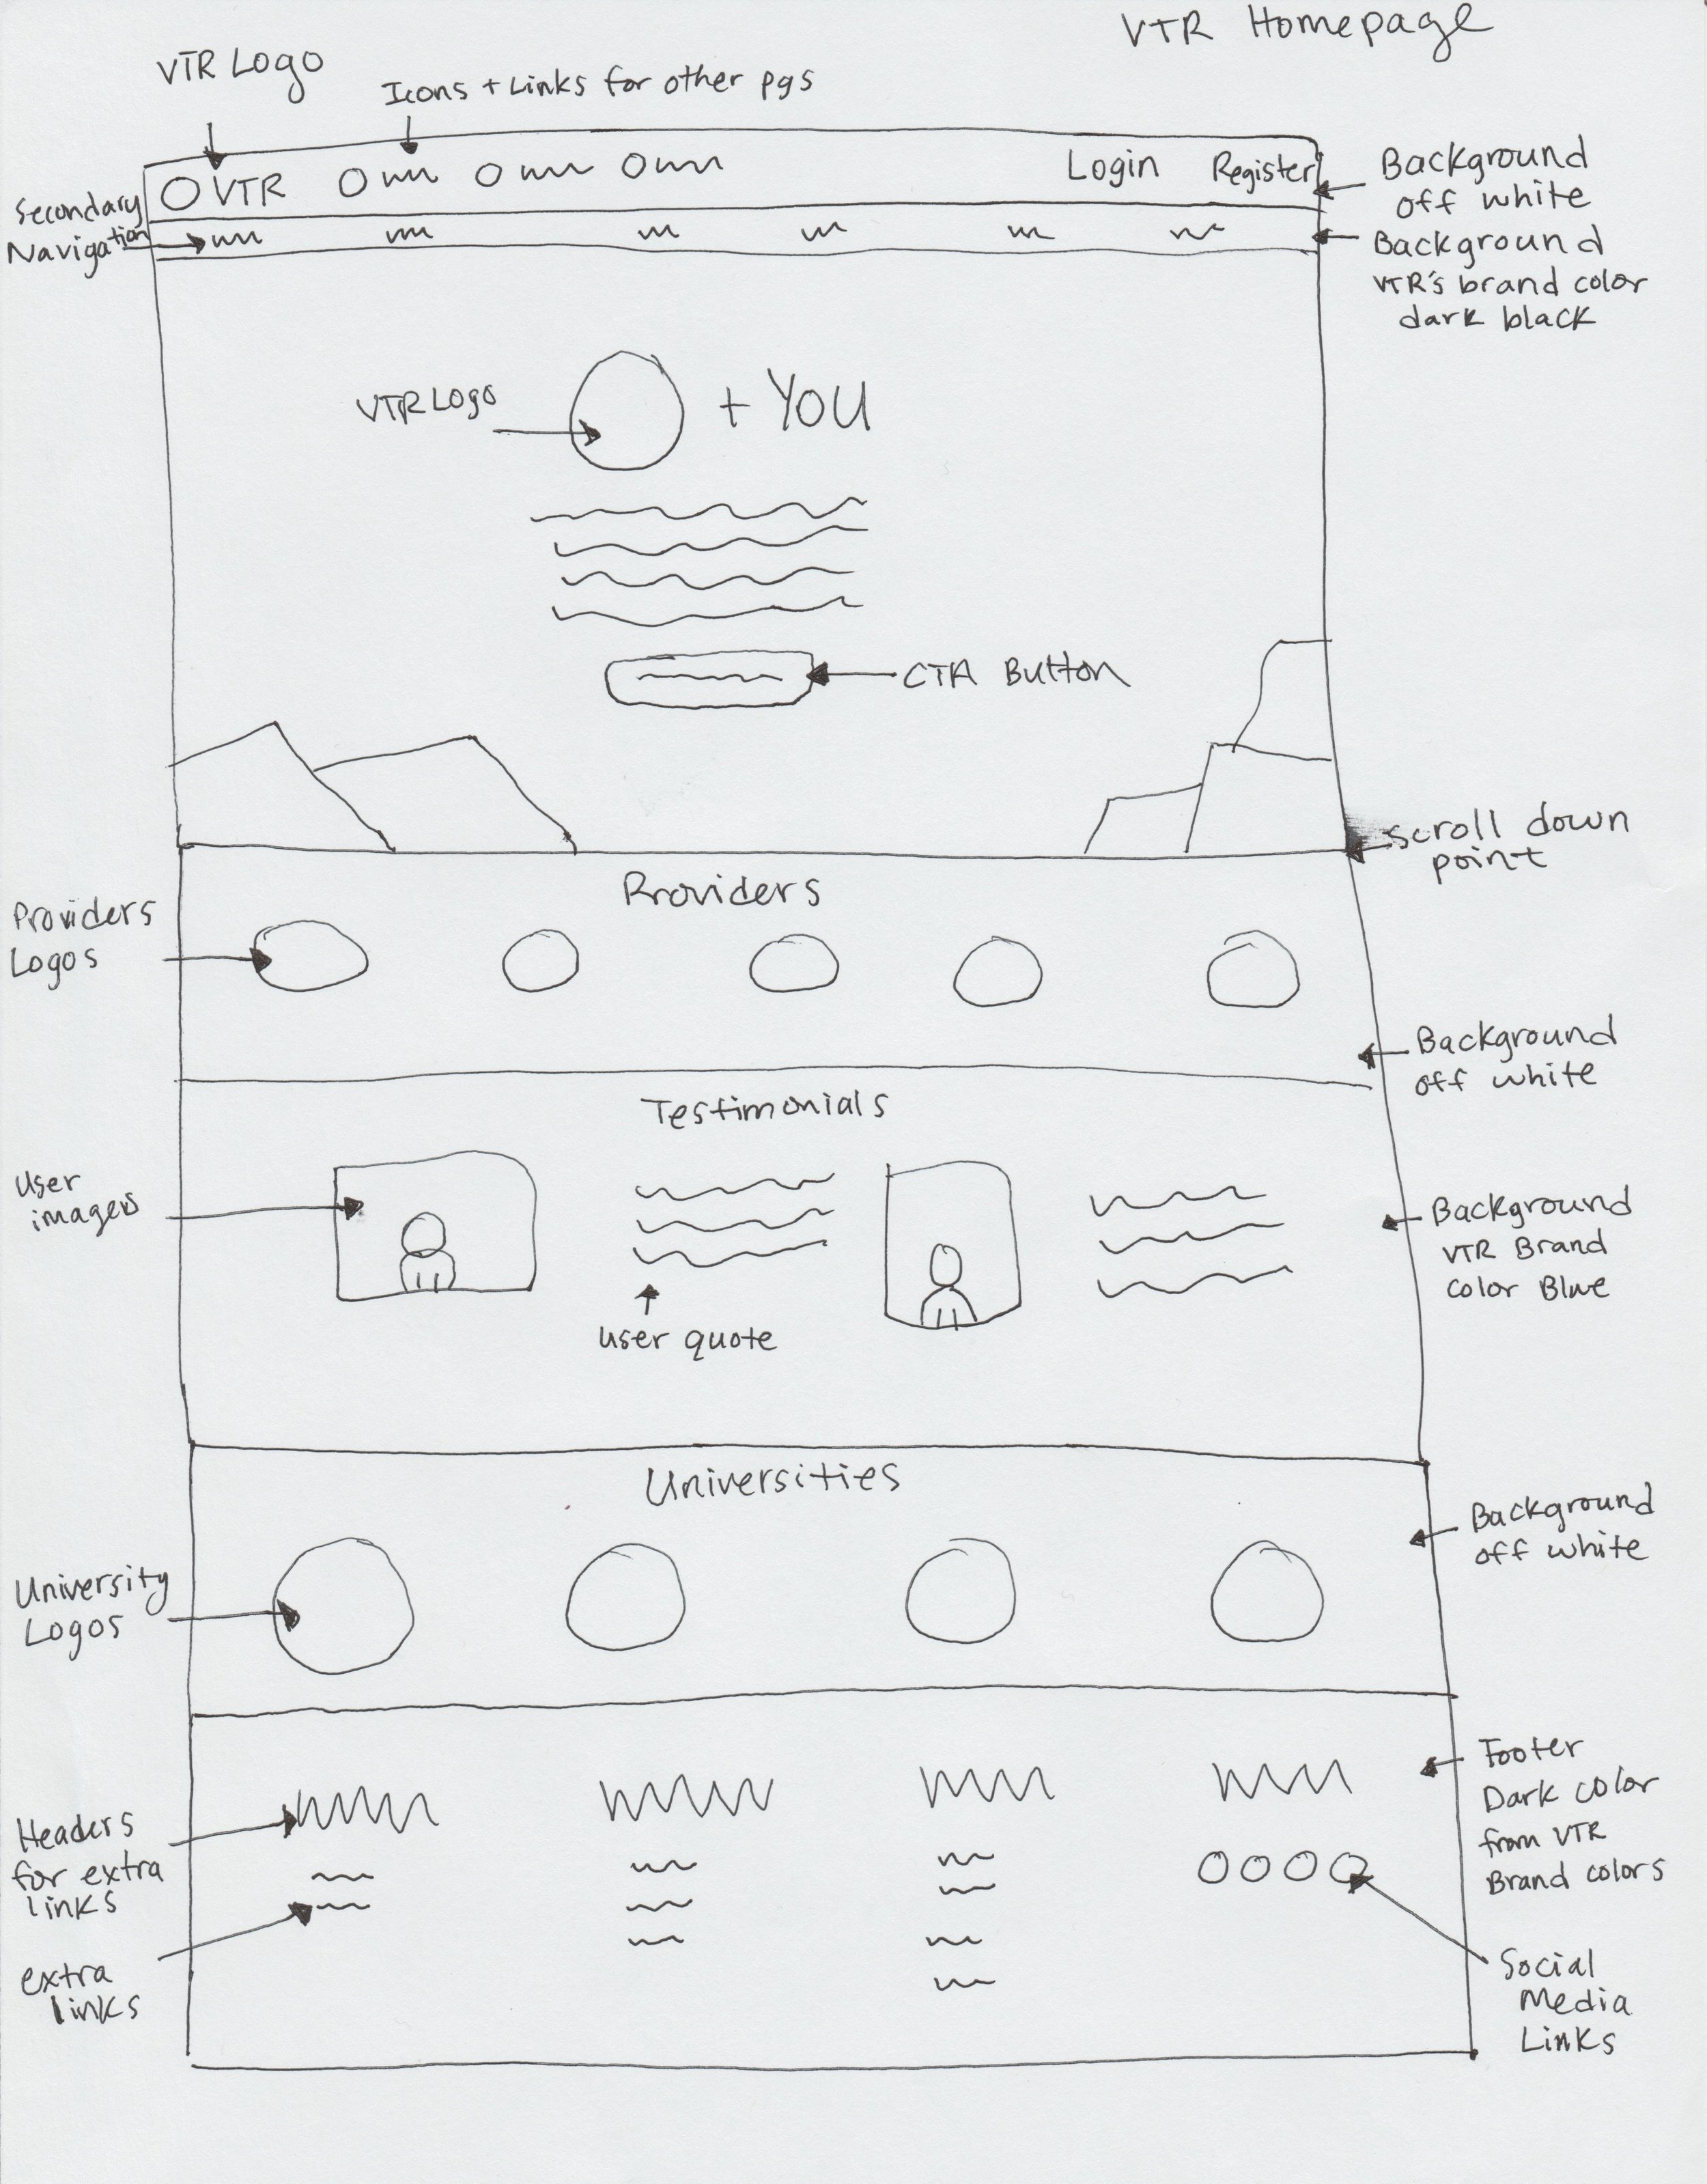 VTR Homepage
VTR Logo
Icons + Links for other pgs
VTR
Login
Register
Background
off white
Secondary
Navigation
Background
VTR's brand color
dark black
VTR Logo
+ YOU
CTA Button
scroll down
point
Providers
Providers
Logos
Background
off white
Testimonials
User
images
Background
VTR Brand
color Blue
user quote
Universities
Background
off white
University
Logos
Footer
Dark color
from VTR
Brand colors
Headers
for extra
links
extra
links
Social
Media
Links